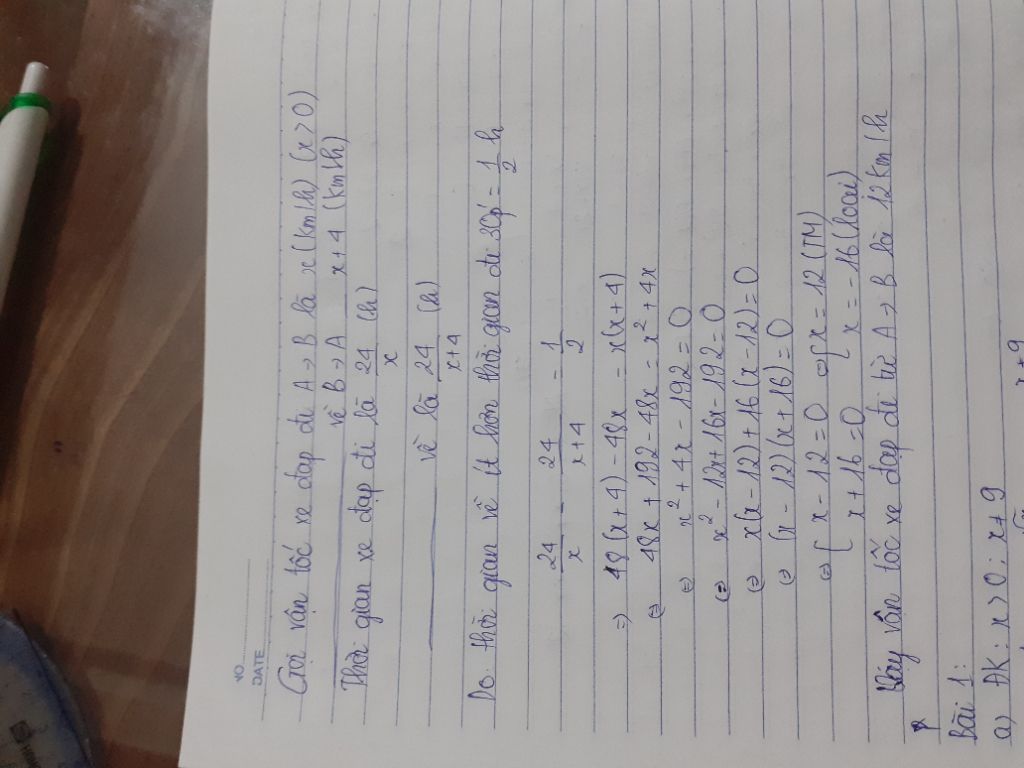 NO
DATE
Gọi vận tốc xe đạp đi A → B là x (km/h) (x > 0)
về B → A x + 4 (km/h)
Thời gian xe đạp đi là 24/x (h)
về là 24/(x+4) (h)
Do thời gian về ít hơn thời gian đi 30p' = 1/2 h
24/x - 24/(x+4) = 1/2
=> 48(x+4) - 48x = x(x+4)
(=) 48x + 192 - 48x = x² + 4x
(=) x² + 4x - 192 = 0
(=) x² - 12x + 16x - 192 = 0
(=) x(x - 12) + 16(x - 12) = 0
(=) (x - 12)(x + 16) = 0
(=) { x - 12 = 0 (=) [ x = 12 (TM)
x + 16 = 0 [ x = -16 (loại)
Vậy vân tốc xe đạp đi từ A → B là 12 km/h
Bài 1:
a) ĐK: x > 0; x ≠ 9